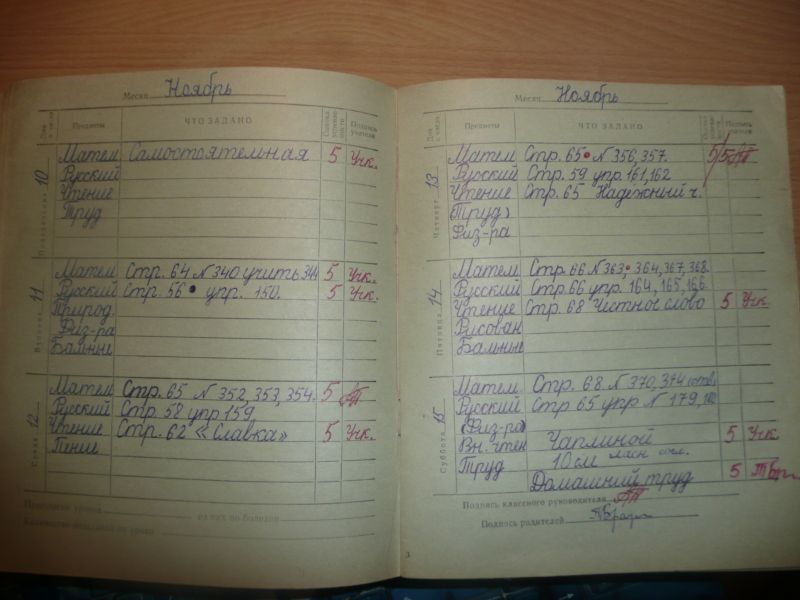 Месяц Ноябрь
Дни и числа Предметы ЧТО ЗАДАНО Оценка успеваемости Подпись учителя
Понедельник 10
Матем Самостоятельная 5 Учк.
Русский
Чтение
Труд
Вторник 11
Матем Стр. 64 N 340 учить 344
Русский Стр. 56 упр. 150. 5 Учк.
Природ
Физ-ра
Бальные
Среда 12
Матем Стр. 65 N 352, 353, 354. 5
Русский Стр. 58 упр 159
Чтение Стр. 62 «Славка» 5 Учк.
Пение
Пропущено уроков из них по болезни
Количество опозданий на уроки
Месяц Ноябрь
Дни и числа Предметы ЧТО ЗАДАНО Оценка успеваемости Подпись учителя
Четверг 13
Матем Стр. 65 N 356, 357. 5/5
Русский Стр. 59 упр. 161, 162
Чтение Стр. 65 Надёжный ч.
(Труд)
Физ-ра
Пятница 14
Матем Стр. 66 N 363, 364, 367, 368.
Русский Стр 66 упр. 164, 165, 166.
Чтение Стр. 68 Честное слово 5 Учк
Рисован
Бальные
Суббота 15
Матем Стр. 68 N 370, 374
Русский Стр 65 упр N 179,
(Физ-ра)
Вн. чтен Чаплиной 5 Учк
Труд 10 см
Домашний труд 5
Подпись классного руководителя
Подпись родителей
3